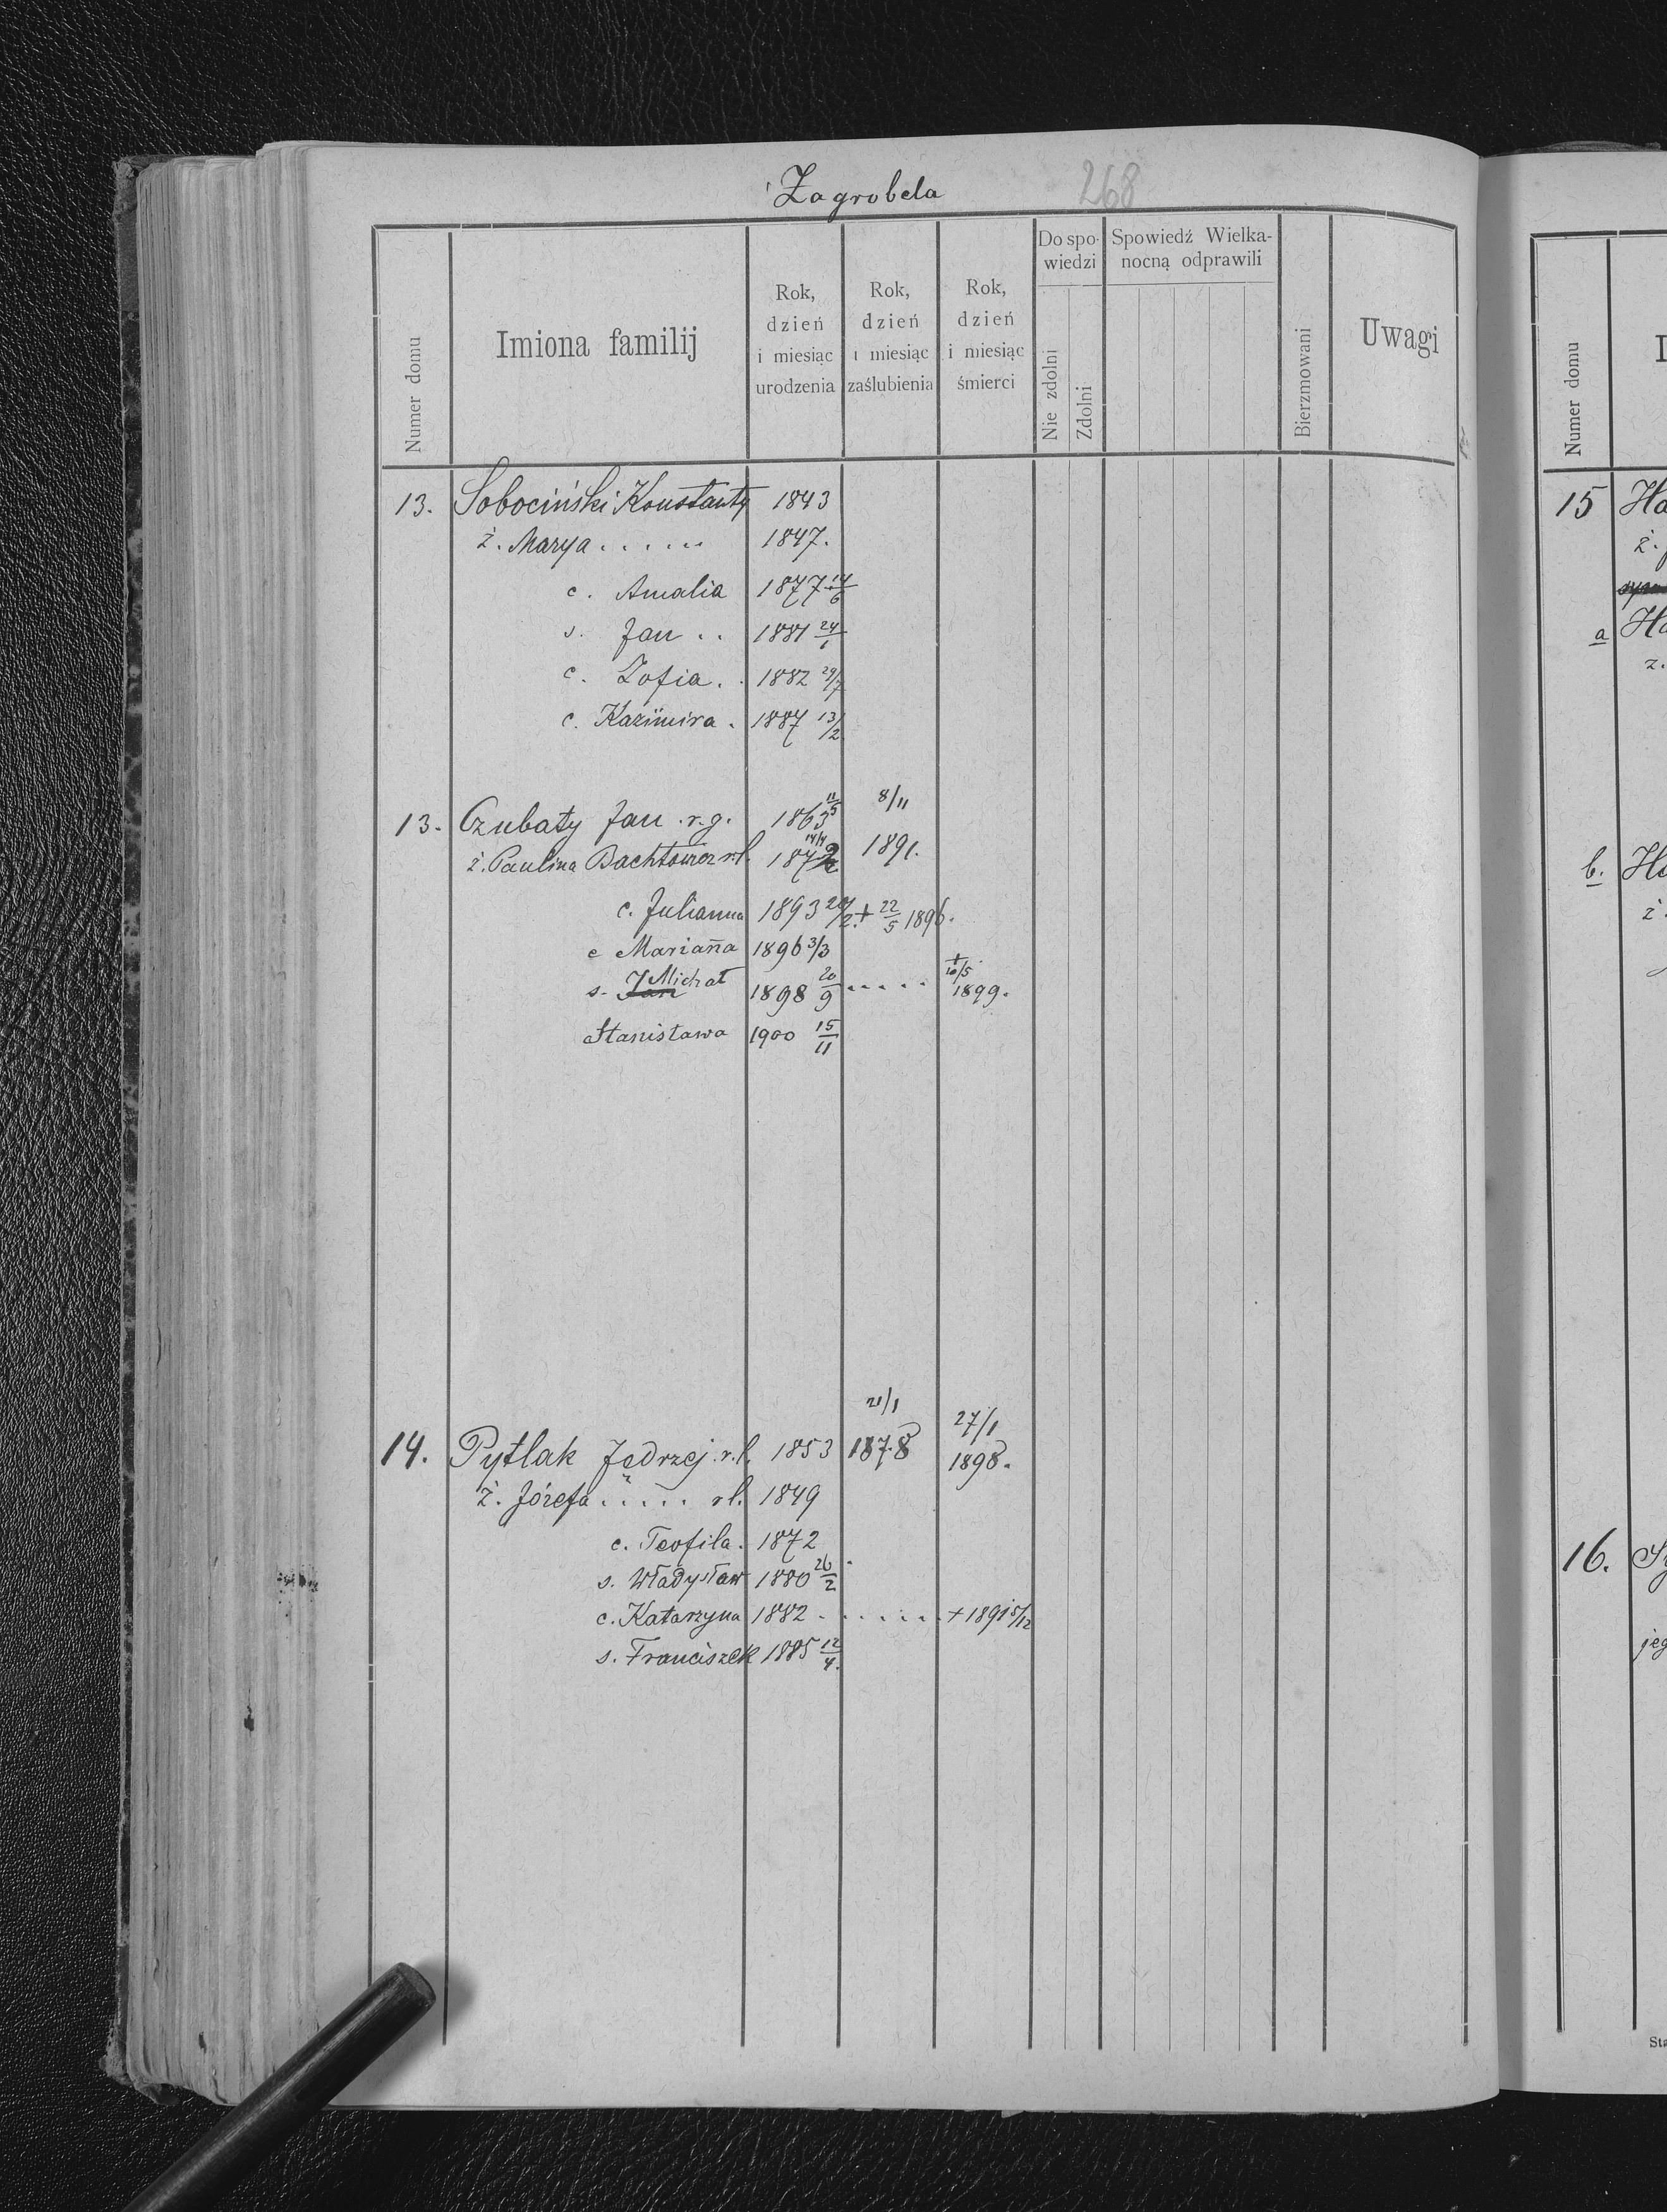 Zagrobela 268
Numer domu
Imiona familij
Rok, dzień i miesiąc urodzenia
Rok, dzień i miesiąc zaślubienia
Rok, dzień i miesiąc śmierci
Do spowiedzi
Nie zdolni
Zdolni
Spowiedź Wielkanocną odprawili
Bierzmowani
Uwagi
13. Sobociński Konstanty 1843
ż. Marya ...... 1847.
c. Amalia 1877 14/6
s. Jan .. 1881 24/1
c. Zofia. . 1882 29/7
c. Kazimira . 1887 13/2
13. Czubaty Jan r.g. 1863 11/5 8/11
ż. Paulina r.l. 1872 14/4 1891.
c. Julianna 1893 20/2 + 22/5 1896.
c Marianna 1896 3/3
s. Jan Michał 1898 20/9 ..... + 10/5 1899.
Stanisława 1900 15/11
14. Pytlak Jędrzej r.l. 1853 21/1 1878 27/1 1898.
ż. Józefa ..... rl. 1849
c. Teofila. 1872
s. Władysław 1880 26/2
c. Katarzyna 1882 ...... + 1891 5/12
s. Franciszek 1885 12/4.
Numer domu
15 Ha
ż.
a Ha
z.
b. Ha
ż
16.
jeg
Sta